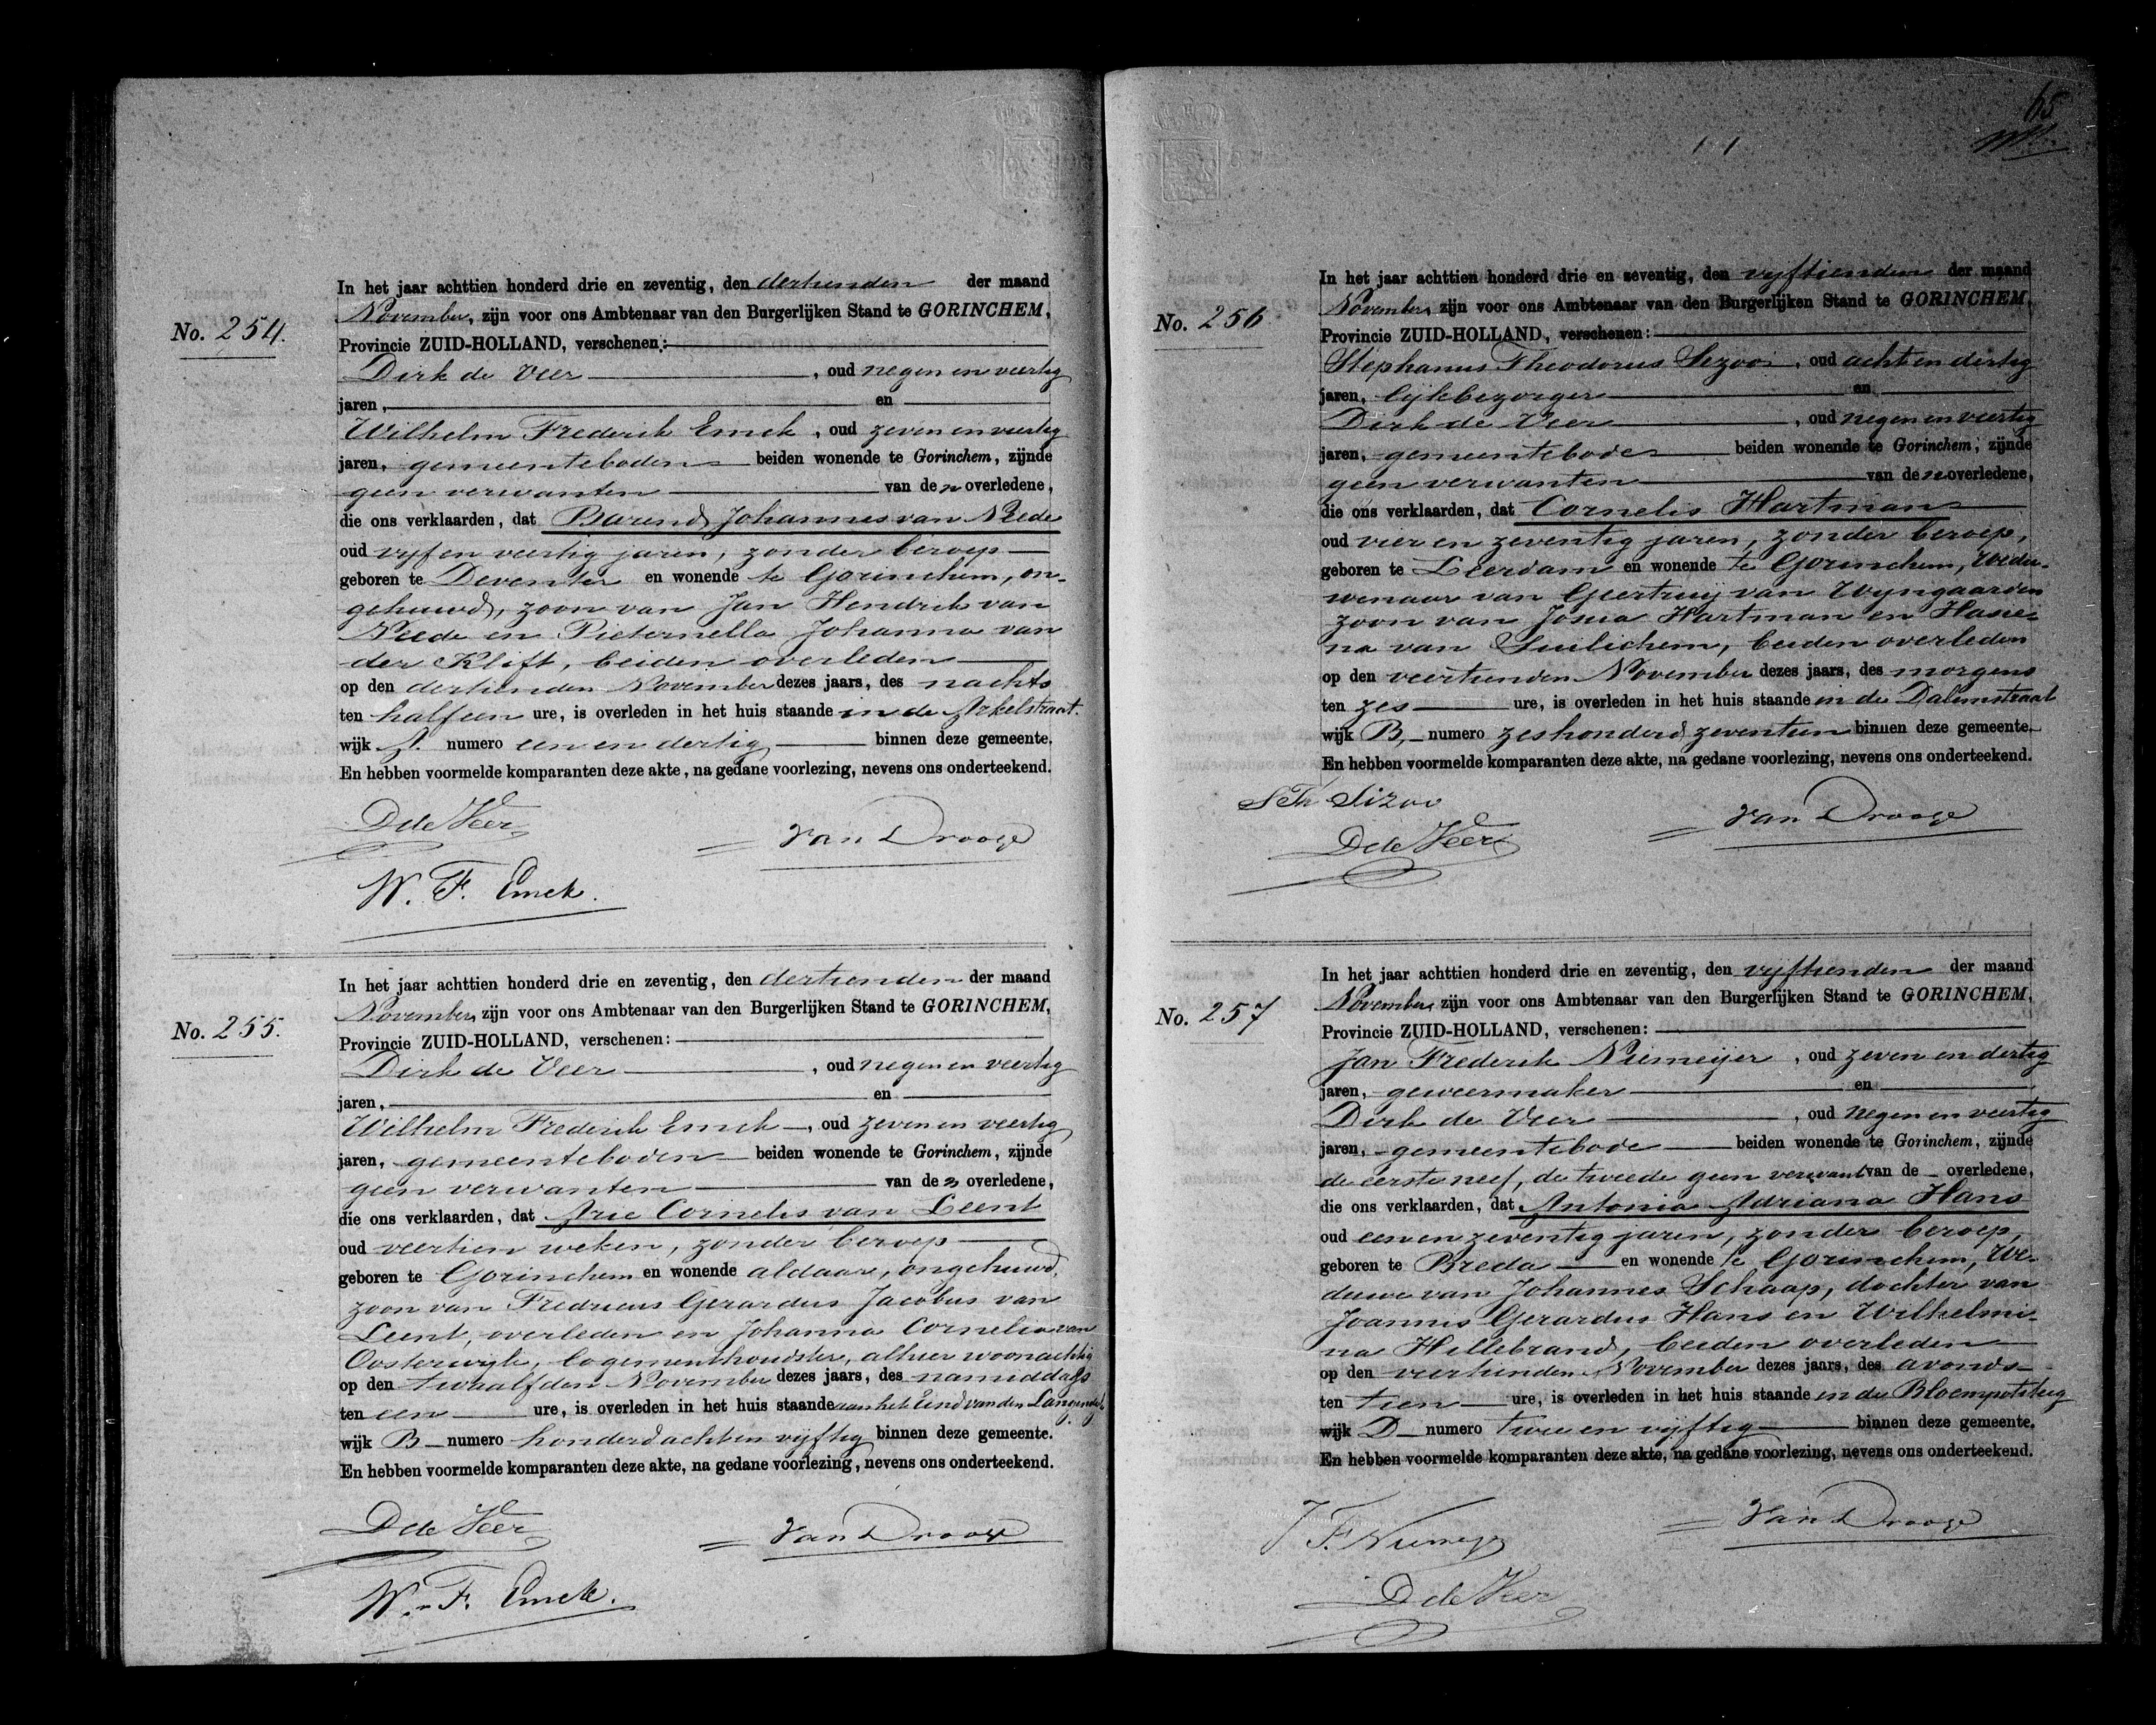 No. 254.
In het jaar achttien honderd drie en zeventig, den dertienden der maand
November, zijn voor ons Ambtenaar van den Burgerlijken Stand te GORINCHEM,
Provincie ZUID-HOLLAND, verschenen:
Dirk de Veer, oud negen en veertig
jaren, en
Wilhelm Frederik Emck, oud zeven en veertig
jaren, gemeenteboden beiden wonende te Gorinchem, zijnde
geen verwanten van de n overledene,
die ons verklaarden, dat Barend Johannes van Neede
oud vijf en veertig jaren, zonder beroep
geboren te Deventer en wonende te Gorinchem, on-
gehuwd, zoon van Jan Hendrik van
Neede en Pieternella Johanna van
der Klift, beiden overleden
op den dertienden November dezes jaars, des nachts
ten half een ure, is overleden in het huis staande in de Arkelstraat.
wijk A. numero een en dertig binnen deze gemeente.
En hebben voormelde komparanten deze akte, na gedane voorlezing, nevens ons onderteekend.
D de Veer
van Drooge
W. F. Emck.
No. 255.
In het jaar achttien honderd drie en zeventig, den dertienden der maand
November, zijn voor ons Ambtenaar van den Burgerlijken Stand te GORINCHEM,
Provincie ZUID-HOLLAND, verschenen:
Dirk de Veer, oud negen en veertig
jaren, en
Wilhelm Frederik Emck, oud zeven en veertig
jaren, gemeenteboden beiden wonende te Gorinchem, zijnde
geen verwanten van de n overledene,
die ons verklaarden, dat Arie Cornelis van Leent
oud veertien weken, zonder beroep
geboren te Gorinchem en wonende aldaar, ongehuwd,
zoon van Fredricus Gerardus Jacobus van
Leent, overleden en Johanna Cornelia van
Oosterwijk, logementhoudster, alhier woonachtig
op den twaalfden November dezes jaars, des namiddags
ten een ure, is overleden in het huis staande aan het Eind van den Langendijk
wijk B numero honderd acht en vijftig binnen deze gemeente.
En hebben voormelde komparanten deze akte, na gedane voorlezing, nevens ons onderteekend.
D de Veer
van Drooge
W. F. Emck.
65
No. 256
In het jaar achttien honderd drie en zeventig, den vijftienden der maand
November, zijn voor ons Ambtenaar van den Burgerlijken Stand te GORINCHEM,
Provincie ZUID-HOLLAND, verschenen:
Stephanus Theodorus Sezoo, oud acht en dertig
jaren, lijkbezorger en
Dirk de Veer, oud negen en veertig
jaren, gemeentebode beiden wonende te Gorinchem, zijnde
geen verwanten van de n overledene,
die ons verklaarden, dat Cornelis Hartman
oud vier en zeventig jaren, zonder beroep,
geboren te Leerdam en wonende te Gorinchem, Wedu-
wenaar van Geertruij van Wijngaarden
zoon van Josua Hartman en Hasei-
na van Suilichem, beiden overleden
op den veertienden November dezes jaars, des morgens
ten zes ure, is overleden in het huis staande in de Dalemstraat
wijk B, numero zeshonderd zeventien binnen deze gemeente.
En hebben voormelde komparanten deze akte, na gedane voorlezing, nevens ons onderteekend.
S Th Sizoo
van Drooge
D de Veer
No. 257
In het jaar achttien honderd drie en zeventig, den vijftienden der maand
November, zijn voor ons Ambtenaar van den Burgerlijken Stand te GORINCHEM,
Provincie ZUID-HOLLAND, verschenen:
Jan Frederik Niemeijer, oud zeven en dertig
jaren, geweermaker en
Dirk de Veer, oud negen en veertig
jaren, gemeentebode beiden wonende te Gorinchem, zijnde
de eerste neef, de tweede geen verwant van de overledene,
die ons verklaarden, dat Antonia Adriana Hans
oud een en zeventig jaren, zonder beroep,
geboren te Breda en wonende te Gorinchem, We-
duwe van Johannes Schaap, dochter van
Joannes Gerardus Hans en Wilhelmi-
na Hillebrand, beiden overleden
op den veertienden November dezes jaars, des avonds
ten tien ure, is overleden in het huis staande in de Bloempotsteeg
wijk D numero twee en vijftig binnen deze gemeente.
En hebben voormelde komparanten deze akte, na gedane voorlezing, nevens ons onderteekend.
J F. Niemeijer
van Drooge
D de Veer